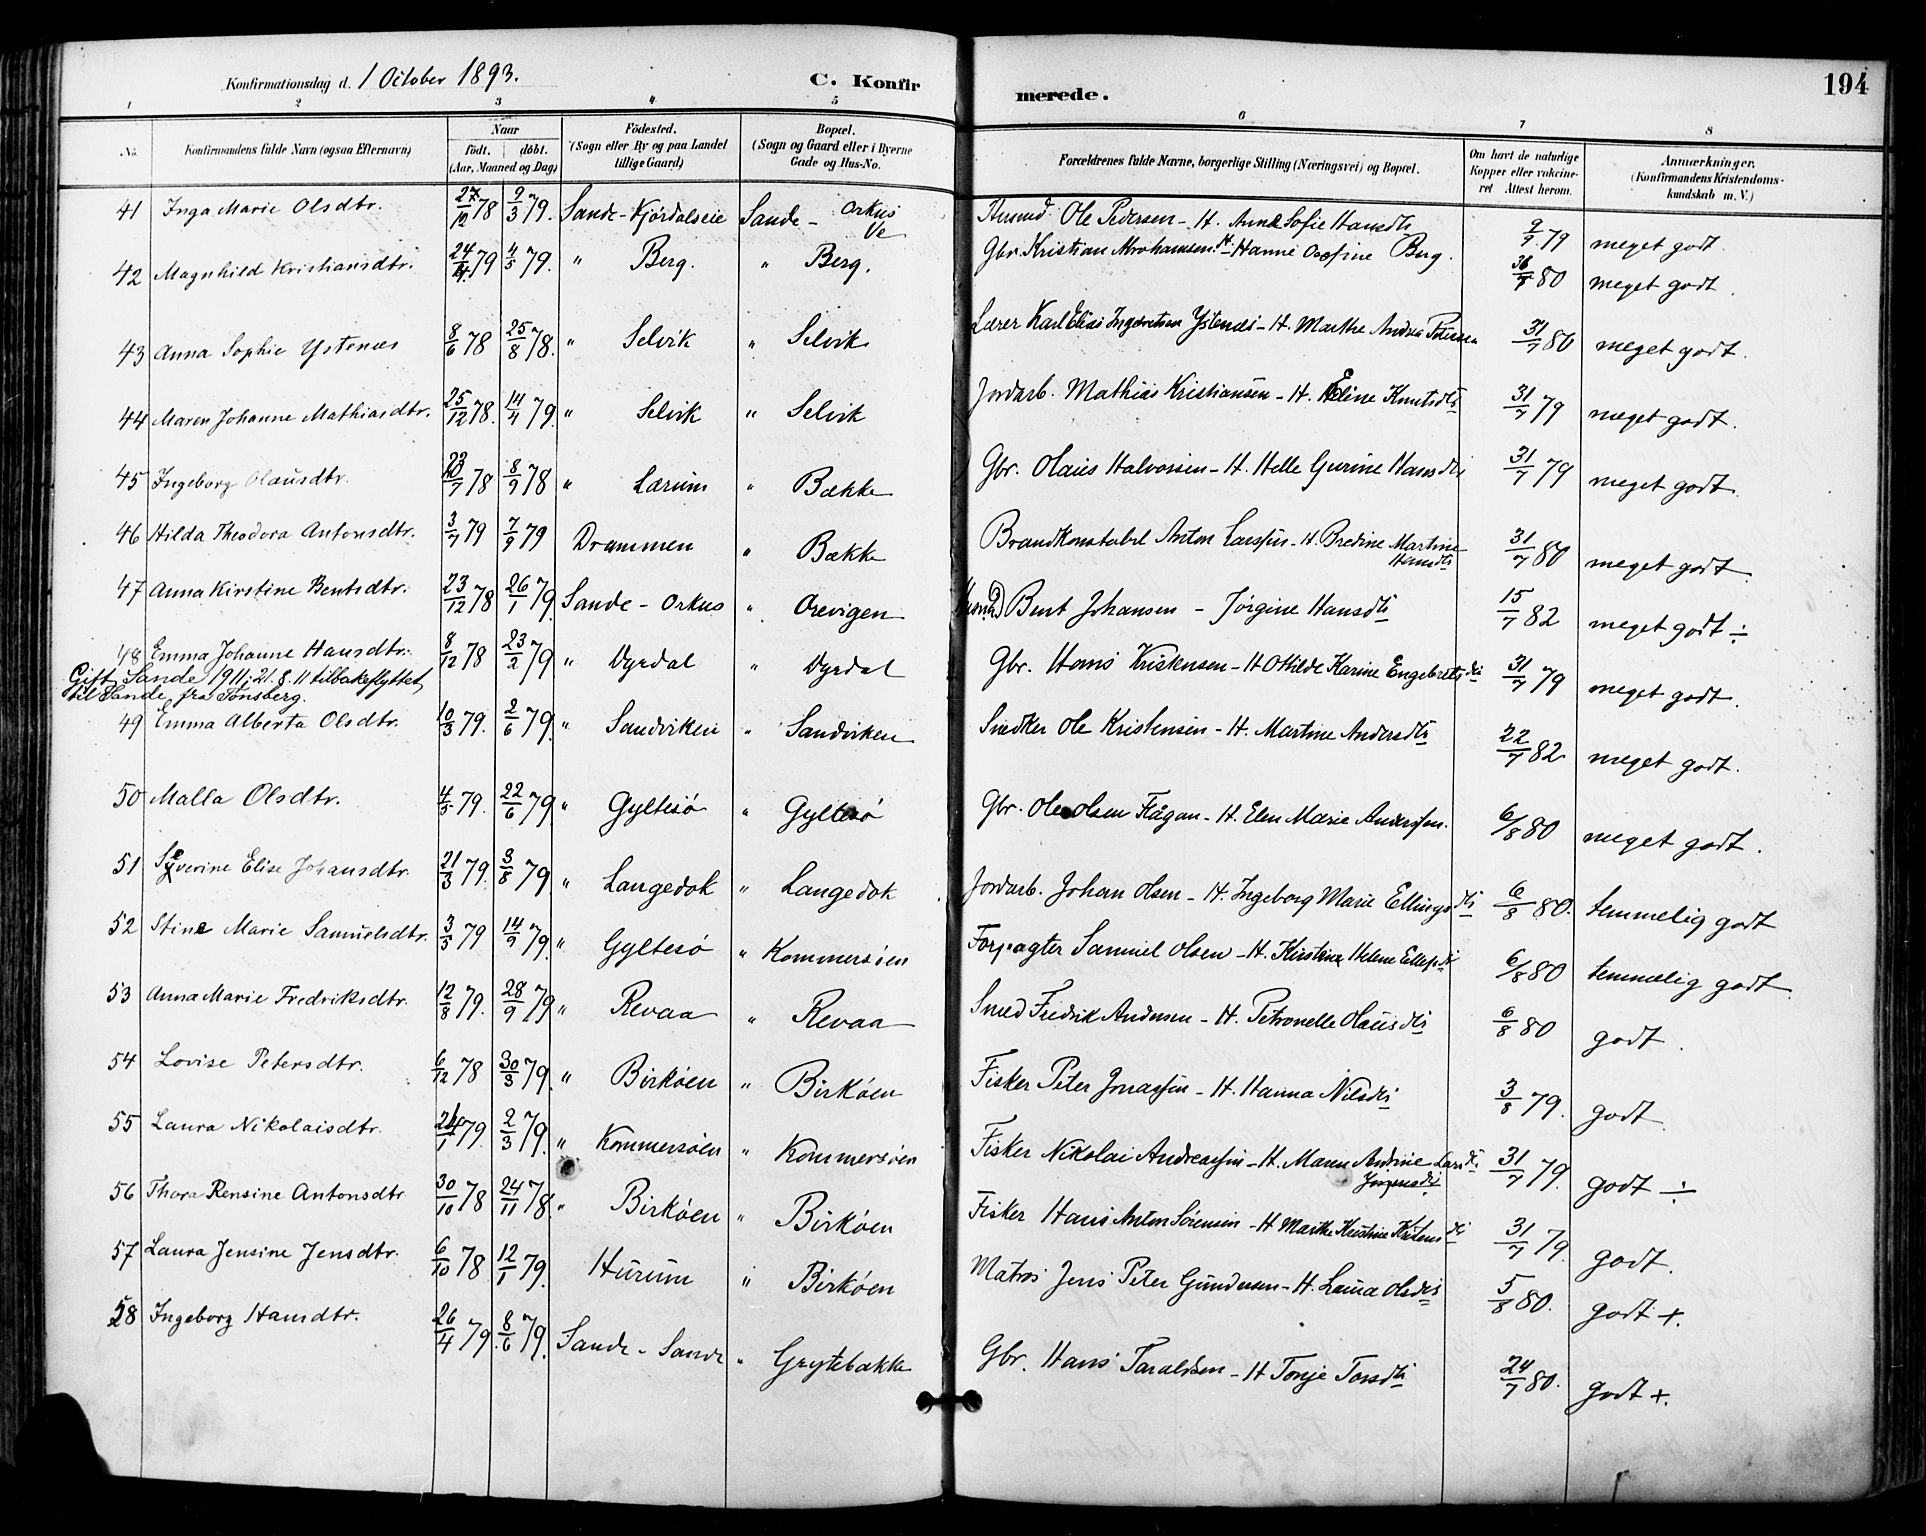 Konfirmationsdag d. 1 October 1893. C. Konfir merede. 194
1 2 3 4 5 6 7 8
No. Konfirmandens fulde Navn (ogsaa Efternavn) Naar født. døbt. (Aar, Maaned og Dag) Fødested. (Sogn eller By og paa Landet tillige Gaard) Bopæl. (Sogn og Gaard eller i Byerne Gade og Hus-No. Forældrenes fulde Navne, borgerlige Stilling (Næringsvei) og Bopæl. Om havt de naturlige Kopper eller vakcineret Attest herom. Anmærkninger. (Konfirmandens Kristendomskundskab m. V.)
41 Inga Marie Olsdtr. 27/10 78 9/3 79. Sande - Kjørdalseie Sande - Orkus Ve Husmd. Ole Pedersen - H. Anne Sofie Hansdtr 9/9 79 meget godt.
42 Magnhild Kristiansdtr. 24/4 79 4/5 79. " Berg. " Berg. Gbr. Kristian Abrahamsen H. Hanne Josefine Berg. 80 meget godt.
43 Anna Sophie Ystenæs 8/6 78 25/8 78. " Selvik " Selvik Lærer Karl Elias Ingebretsen Ystenæs - H. Marthe Andrea Petersen 31/7 80 meget godt.
44 Maren Johanne Mathiasdtr. 25/12 78. 14/4 79. " Selvik " Selvik Jordarb. Mathias Kristiansen - H. Eline Knutsdtr 31/7 79 meget godt.
45 Ingeborg Olausdtr. 23/7 78 8/9 78 " Lærum " Bække Gbr. Olaus Halvorsen - H. Helle Gurine Hansdtr 31/7 79 meget godt.
46 Hilda Theodora Antonsdtr. 3/7 79 7/9 79 Drammen " Bække Brandkonstabel Anton Larssen - H. Bredine Martine Hansdtr 31/7 80 meget godt.
47 Anna Kirstine Bentsdtr. 23/12 78 26/1 79. Sande - Orkus " Orevigen Bent Johansen - Jørgine Hansdtr 15/7 82 meget godt ÷
48 Emma Johanne Hansdtr. 8/12 78 23/2 79 " Dyrdal " Dyrdal Gbr. Hans Kristensen - H Othilde Karine Engebretsdtr 31/7 79 meget godt.
Gift Sande 1911: 21.8.11 tilbakeflyttet
til Sande fra Tønsberg.
49 Emma Alberta Olsdtr. 10/3 79. 2/6 79. " Sandviken " Sandviken Snedker Ole Kristensen - H. Martine Andersdtr 22/7 82 meget godt.
50 Malla Olsdtr. 4/5 79. 22/6 79 " Gyltesø " Gyltesø Gbr. Ole Olsen Flågan - H. Elen Marie Anderssen. 6/8 80 meget godt.
51 Severine Elise Johansdtr. 21/3 79. 3/8 79 " Langedok " Langedok Jordarb. Johan Olsen - H. Ingeborg Marie Ellingsdtr 6/8 80. temmelig godt
52 Stine Marie Samuelsdtr. 3/5 79 14/9 79. " Gyltesø " Kommersøen Forpagter Samuel Olsen - H. Kirstine Helene Ellefsdtr 6/8 80 temmelig godt.
53 Anna Marie Fredriksdtr. 12/8 79. 28/9 79 " Revaa " Revaa Smed Fredrik Andersen - H. Petronelle Olausdtr 6/8 80 godt.
54 Lovise Petersdtr. 6/12 78 30/3 79. " Birkøen " Birkøen Fisker Peter Jonassen - H. Hanna Nilsdtr 3/8 79. godt.
55 Laura Nikolaisdtr. 24/1 79. 2/3 79. " Kommersøen " Kommersøen Fisker Nikolai Andreassen - H. Maren Andrine Larsdtr Jørgensdtr 31/7 79. godt ÷
56 Thora Rensine Antonsdtr 30/10 78 24/11 78. " Birkøen " Birkøen Fisker Hans Anton Sørensen - H Marthe Kristine Kristensdtr 31/7 79. godt.
57 Laura Jensine Jensdtr. 6/10 78 12/1 79. Hurum " Birkøen Matros Jens Peter Gundersen - H. Laura Olsdtr 5/8 80. godt +.
58 Ingeborg Hansdtr. 26/4 79. 8/6 79. Sande - Sande " Grytebakke Gbr. Hans Taraldsen - H Tonje Torsdtr 24/7 80. godt +.